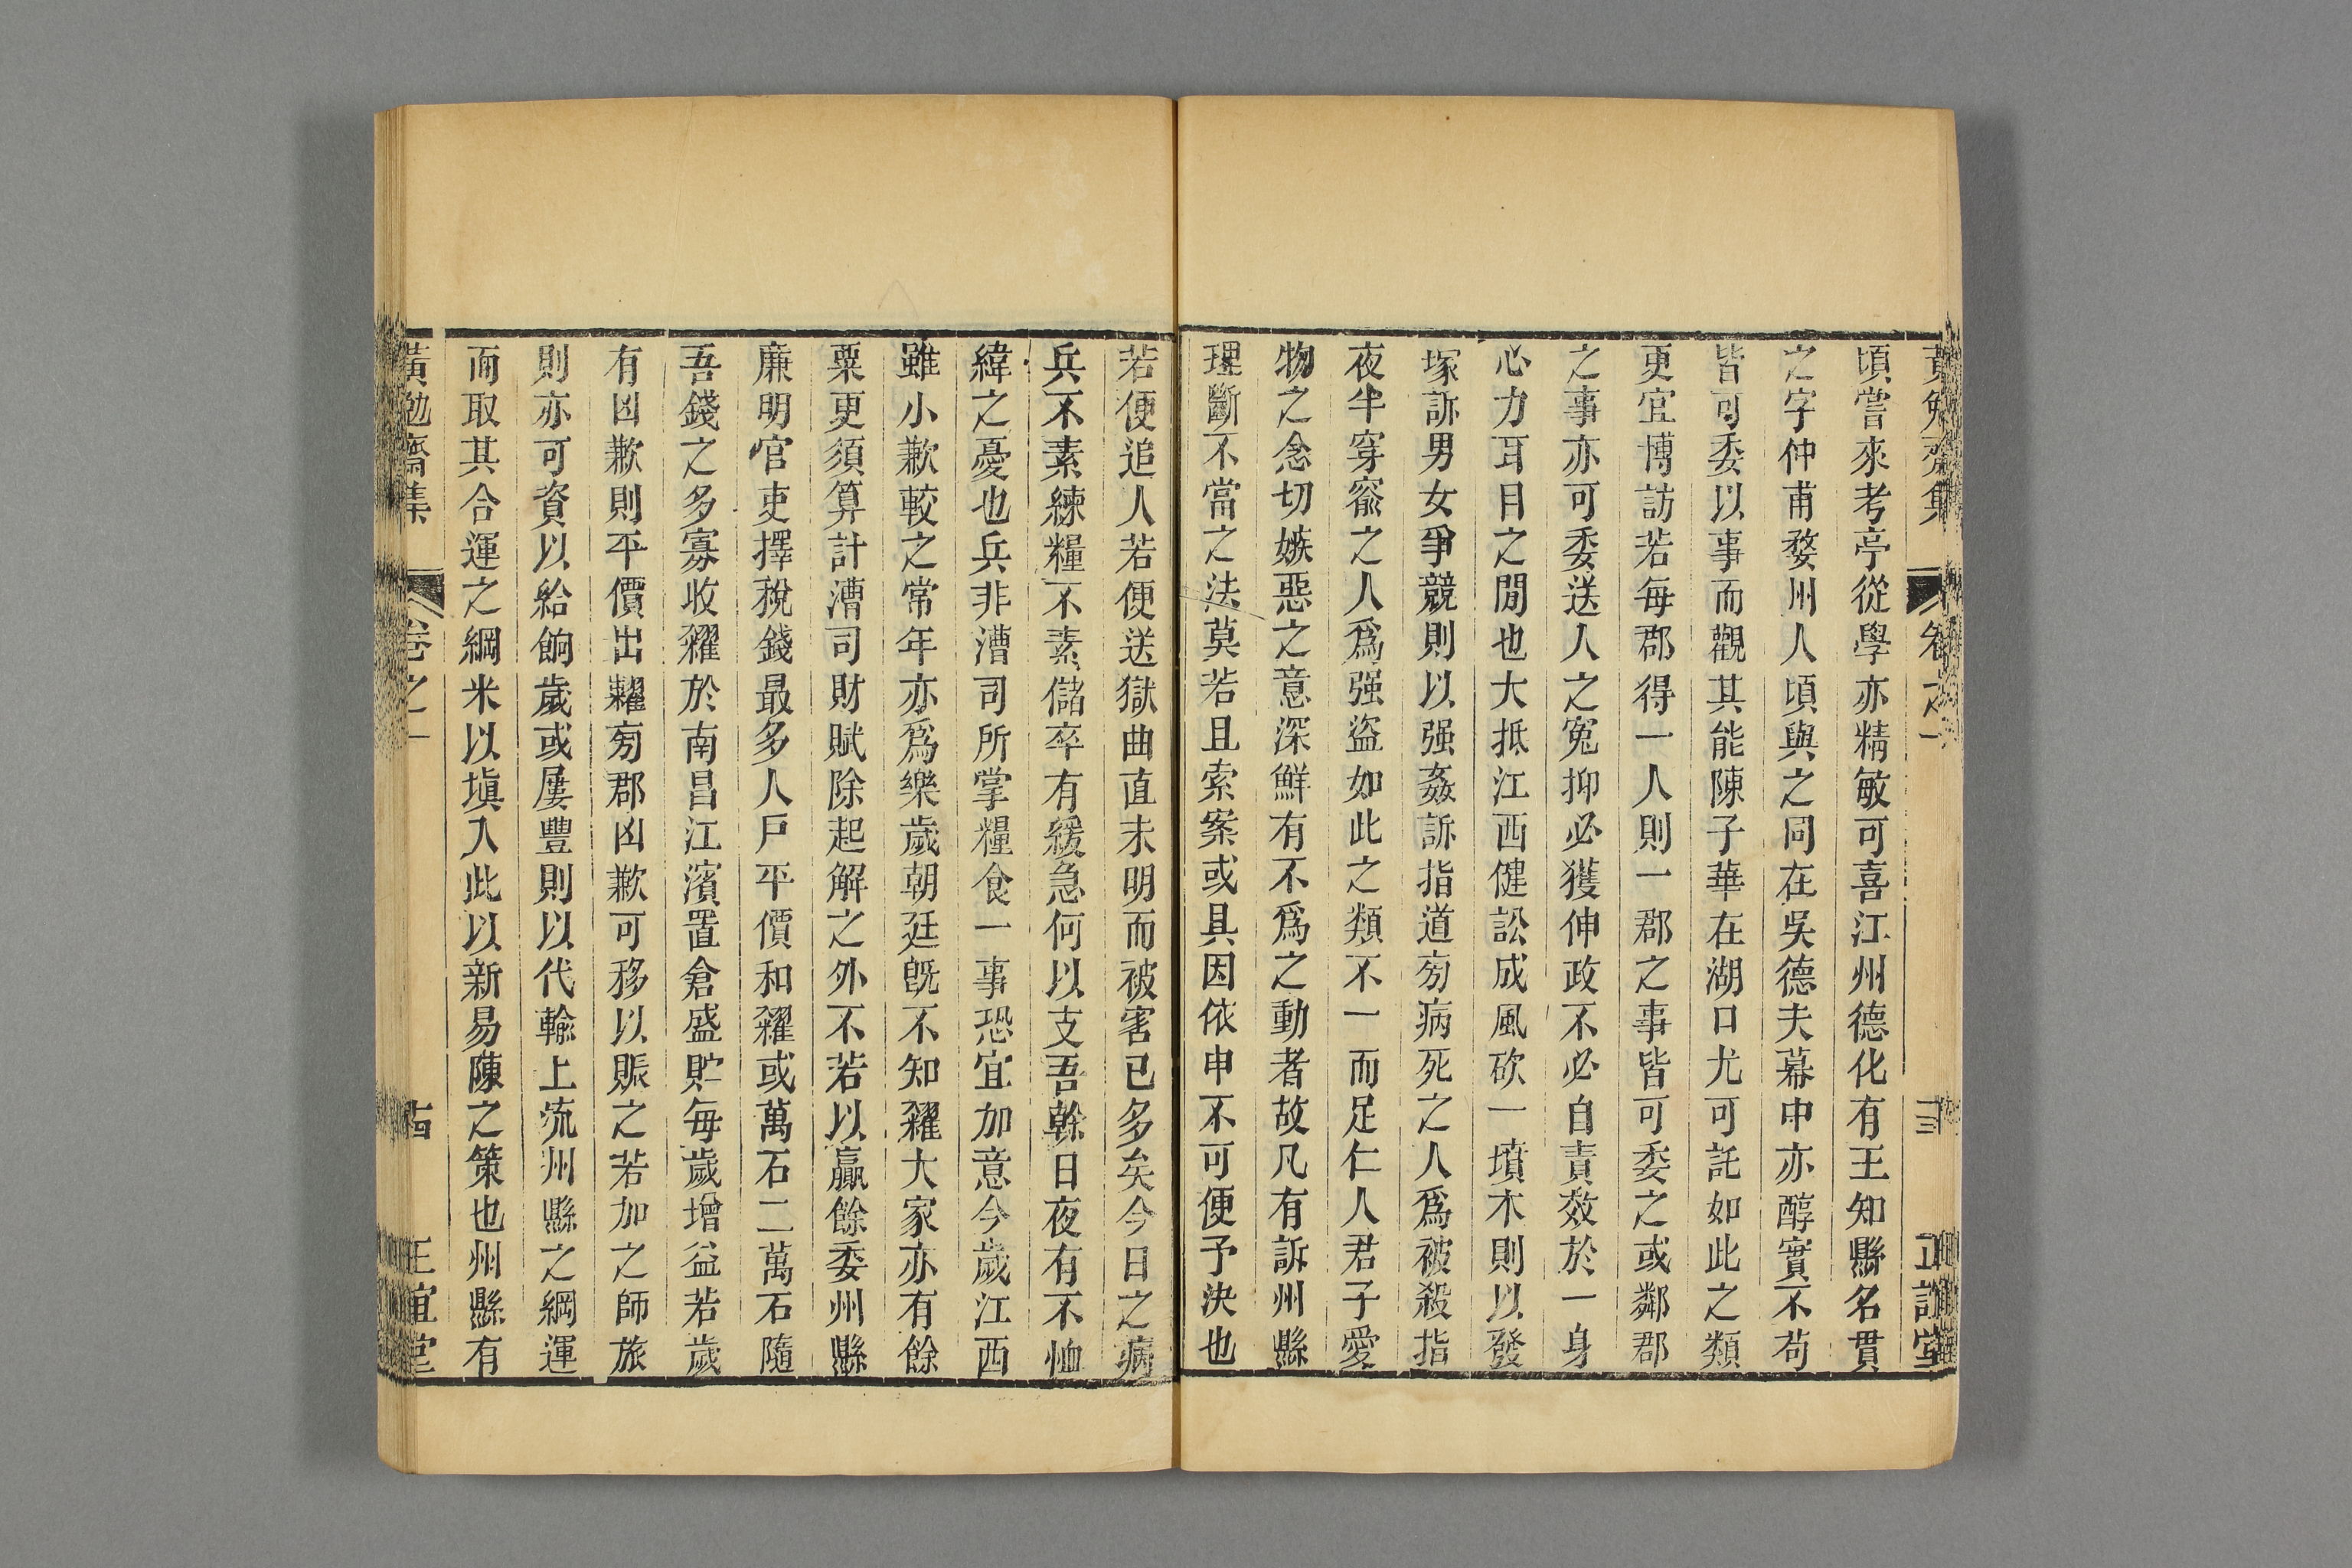 黃勉齋集 卷之一 三 正誼堂
頃嘗來考亭從學亦精敏可喜江州德化有王知縣名貫
之字仲甫婺州人頃與之同在吳德夫幕中亦醇實不苟
皆可委以事而觀其能陳子華在湖口尤可託如此之類
更宜博訪若每郡得一人則一郡之事皆可委之或鄰郡
之事亦可委送人之寃抑必獲伸政不必自責效於一身
心力耳目之間也大抵江西健訟成風砍一墳木則以發
塚訴男女爭競則以强姦訴指道旁病死之人爲被殺指
夜半穿窬之人爲强盜如此之類不一而足仁人君子愛
物之念切嫉惡之意深鮮有不爲之動者故凡有訴州縣
理斷不當之法莫若且索案或具因依申不可便予決也
若便追人若便送獄曲直未明而被害已多矣今日之病
兵不素練糧不素儲卒有緩急何以支吾榦日夜有不恤
緯之憂也兵非漕司所掌糧食一事恐宜加意今歲江西
雖小歉較之常年亦爲樂歲朝廷旣不知糴大家亦有餘
粟更須算計漕司財賦除起解之外不若以贏餘委州縣
廉明官吏擇稅錢最多人戶平價和糴或萬石二萬石隨
吾錢之多寡收糴於南昌江濱置倉盛貯每歲增益若歲
有凶歉則平價出糶旁郡凶歉可移以賑之若加之師旅
則亦可資以給餉歲或屢豐則以代輸上流州縣之綱運
而取其合運之綱米以塡入此以新易陳之策也州縣有
黃勉齋集 卷之一 古 正誼堂